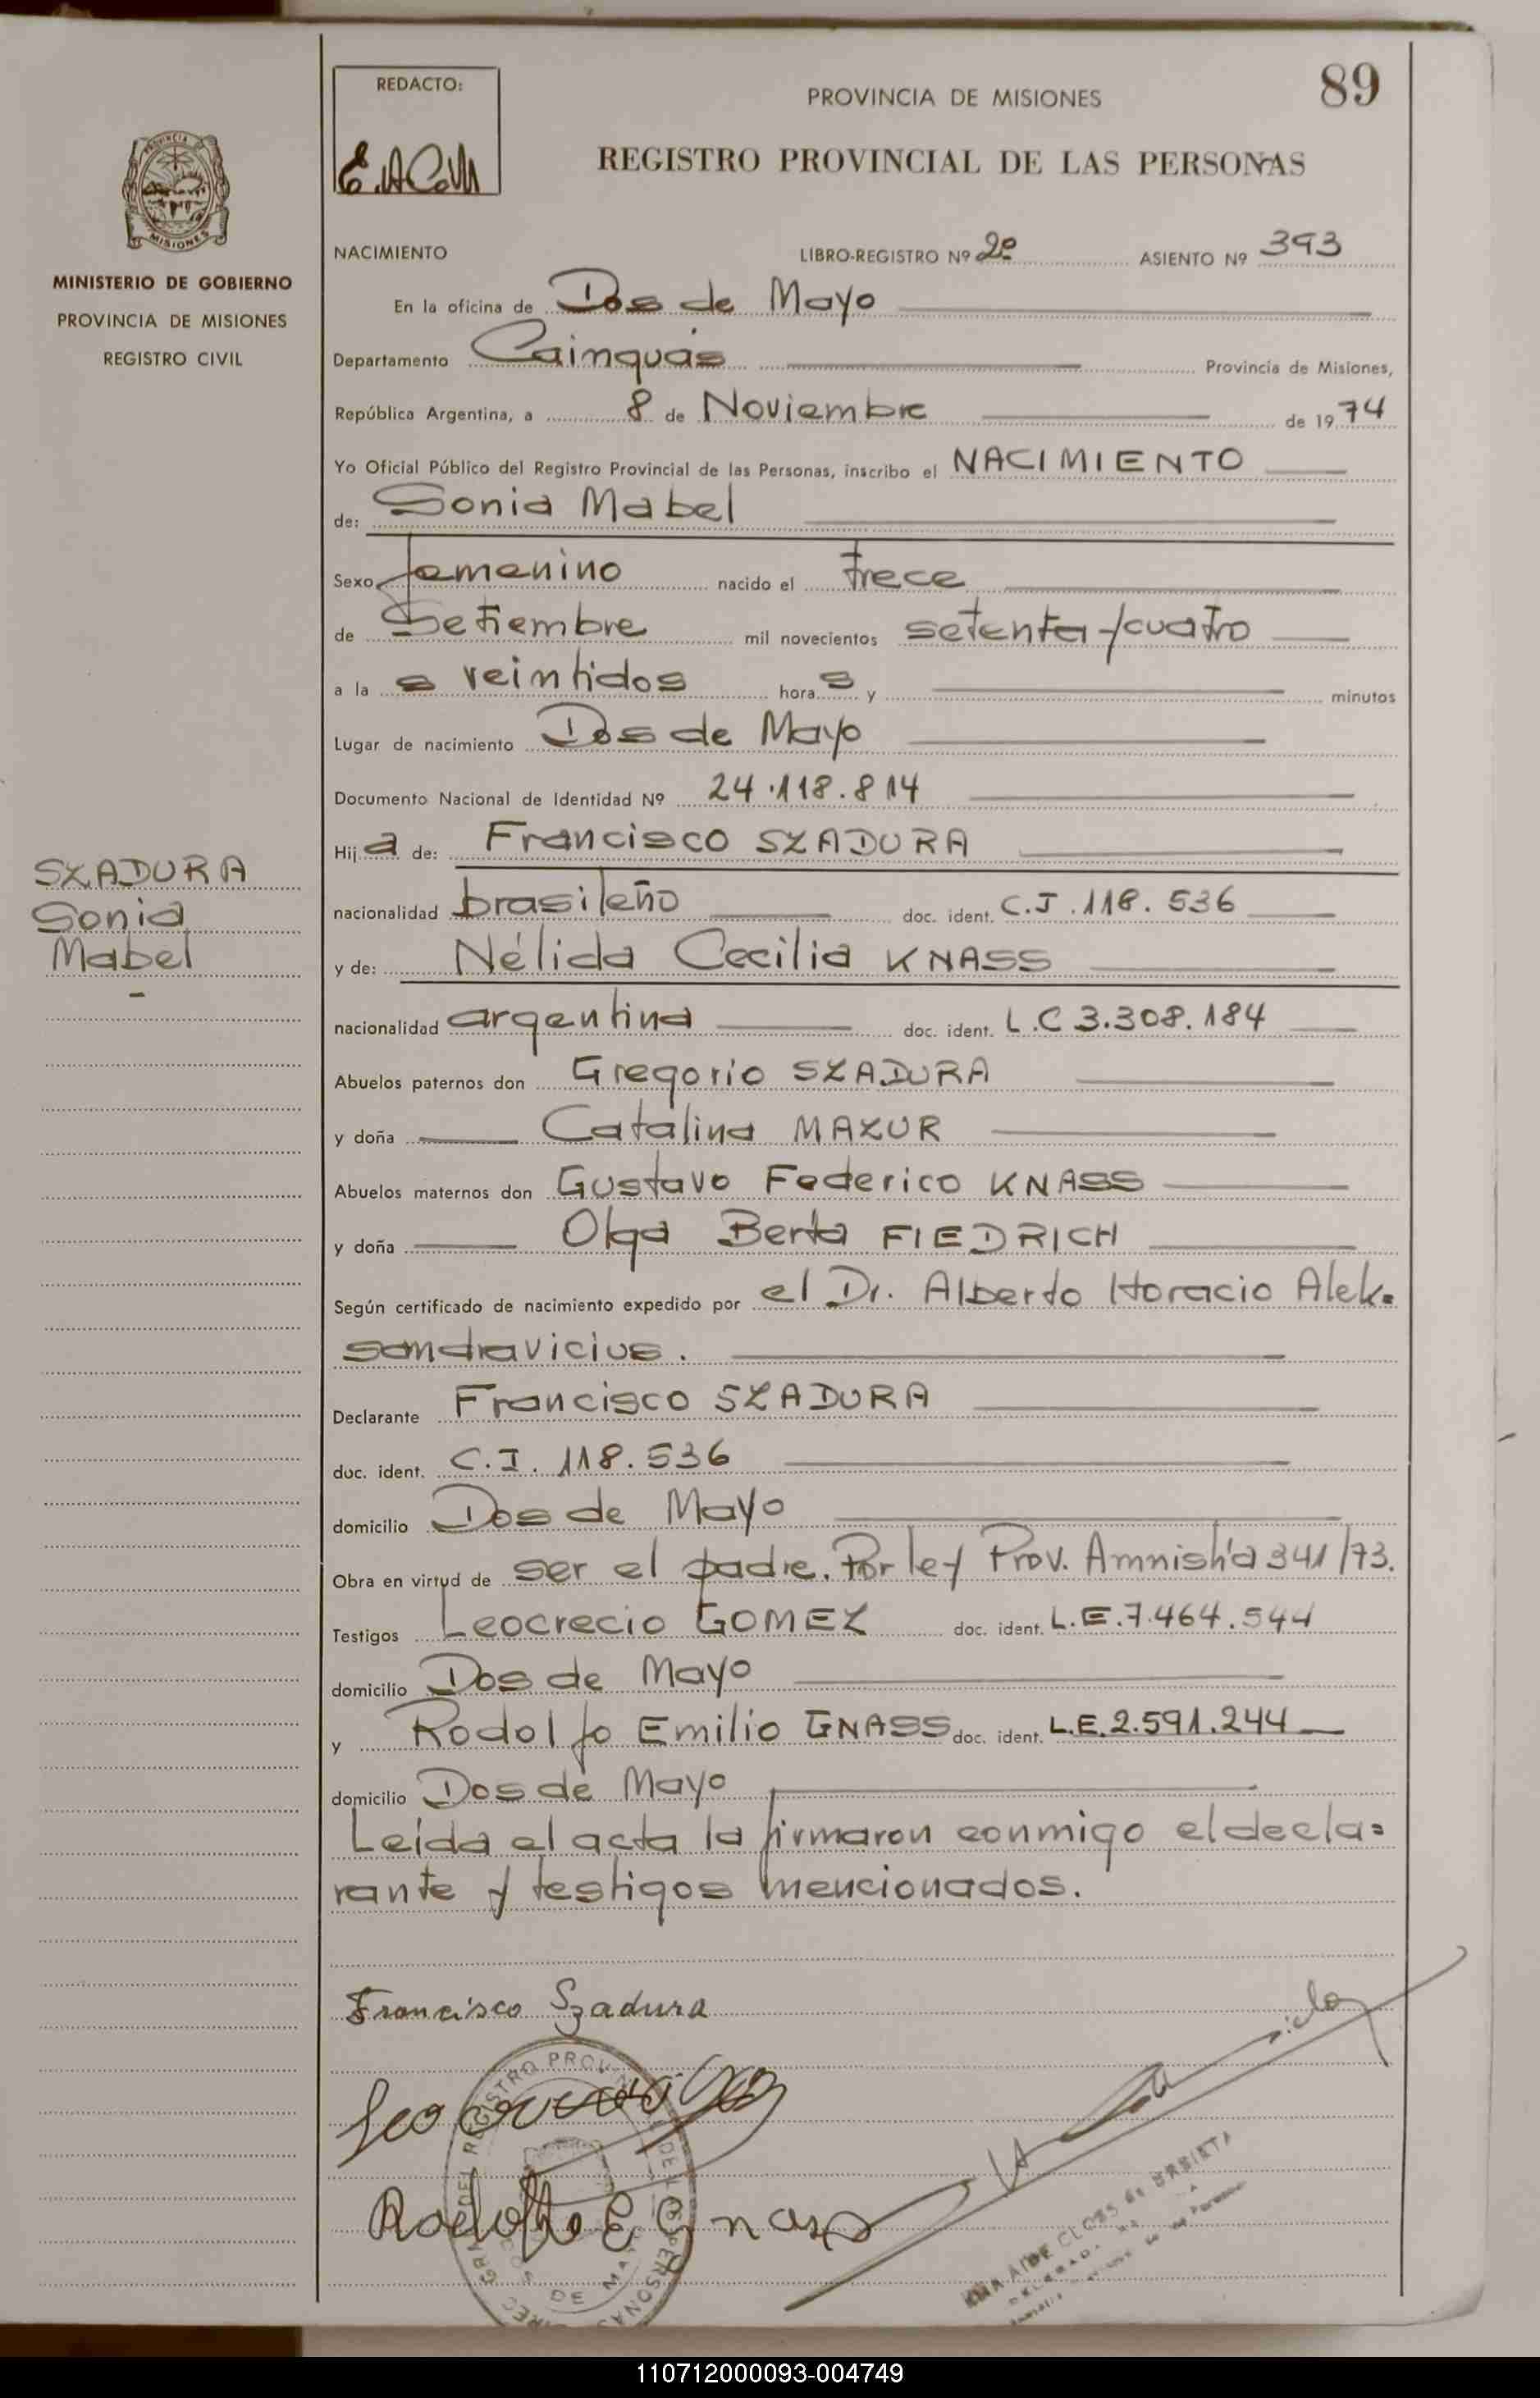 89
REDACTO:
PROVINCIA DE MISIONES
REGISTRO PROVINCIAL DE LAS PERSONAS
PROVINCIA
MISIONES
MINISTERIO DE GOBIERNO
PROVINCIA DE MISIONES
REGISTRO CIVIL
NACIMIENTO LIBRO-REGISTRO Nº 2º ASIENTO Nº 393
En la oficina de Dos de Mayo
Departamento Cainguás Provincia de Misiones,
República Argentina, a 8 de Noviembre de 1974
Yo Oficial Público del Registro Provincial de las Personas, inscribo el NACIMIENTO
de: Sonia Mabel
Sexo femenino nacido el trece
de Setiembre mil novecientos setenta y cuatro
a la s veintidos hora s y minutos
Lugar de nacimiento Dos de Mayo
Documento Nacional de Identidad Nº 24.118.814
Hij a de: Francisco SZADURA
SZADURA
Sonia
Mabel
nacionalidad brasileño doc. ident. C.I. 118.536
y de: Nélida Cecilia KNASS
nacionalidad argentina doc. ident. L.C 3.308.184
Abuelos paternos don Gregorio SZADURA
y doña Catalina MAZUR
Abuelos maternos don Gustavo Federico KNASS
y doña Olga Berta FIEDRICH
Según certificado de nacimiento expedido por el Dr. Alberto Horacio Alek=
sandravicius.
Declarante Francisco SZADURA
doc. ident. C.I. 118.536
domicilio Dos de Mayo
Obra en virtud de ser el padre. Por ley Prov. Amnistía 341/73.
Testigos Leocrecio GOMEZ doc. ident. L.E. 7.464.544
domicilio Dos de Mayo
y Rodolfo Emilio GNASS doc. ident. L.E. 2.591.244
domicilio Dos de Mayo
Leída el acta la firmaron conmigo el decla=
rante y testigos mencionados.
Francisco Szadura
Rodolfo E Gnass
110712000093-004749